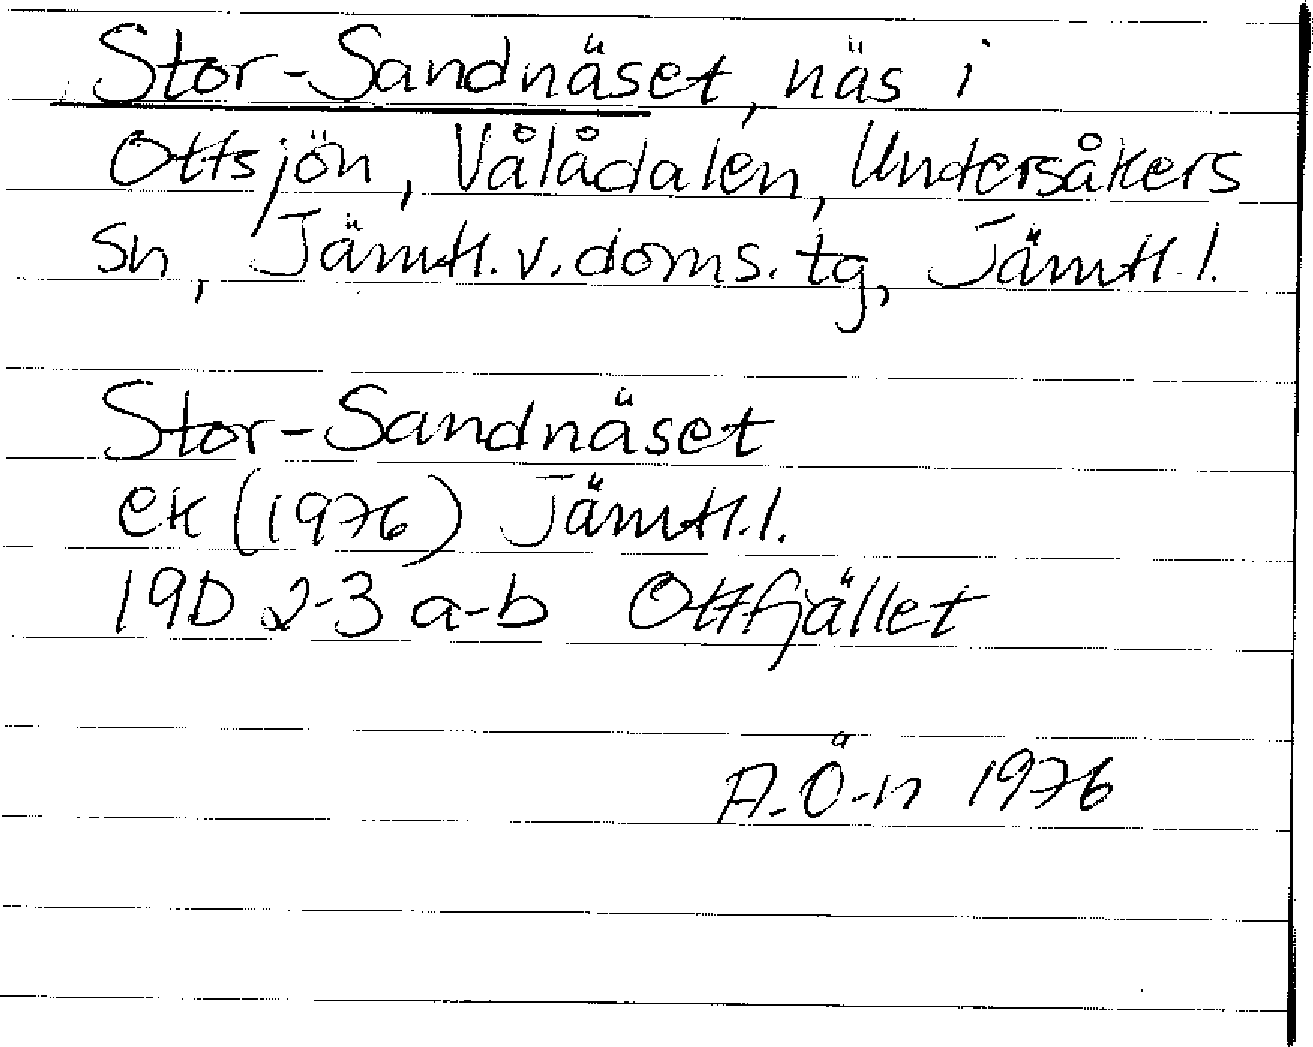 Stor-Sandnäset, näs i
Ottsjön, Vålådalen, Undersåkers
sn, Jämtl. v. doms. tg, Jämtl. l.
Stor-Sandnäset
ek (1976) Jämtl. l.
19D 2-3 a-b Ottfjället
A. Ö-n 1976